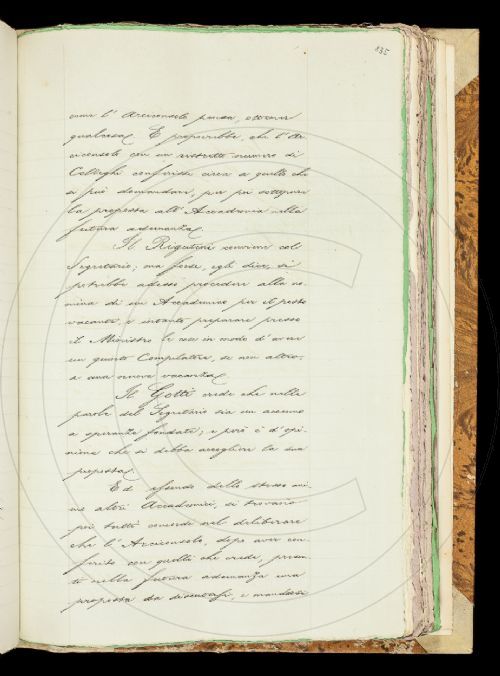 835
come l'Arciconsolo pensa, ottenere
qualcosa. E proporrebbe, che l'Ar-
ciconsolo con un ristretto numero di
Colleghi conferisse circa a quello che
si può domandare, per poi sottoporre
la proposta all'Accademia nella
futura adunanza.
Il Rigutini conviene col
Segretario; ma forse, egli dice, si
potrebbe adesso procedere alla no-
mina di un Accademico per il posto
vacante, e intanto preparare presso
il Ministro le cose in modo d'avere
un quinto Compilatore, se non altro,
a una nuova vacanza.
Il Gotti crede che nelle
parole del Segretario sia un accenno
a speranze fondate; e però è d'opi-
nione che si debba accogliere la sua
proposta.
Ed essendo dello stesso avvi-
so altri Accademici, si trovano
poi tutti concordi nel deliberare
che l'Arciconsolo, dopo aver con-
ferito con quelli che crede, presen-
ti nella futura adunanza una
proposta da discutersi, e mandarsi